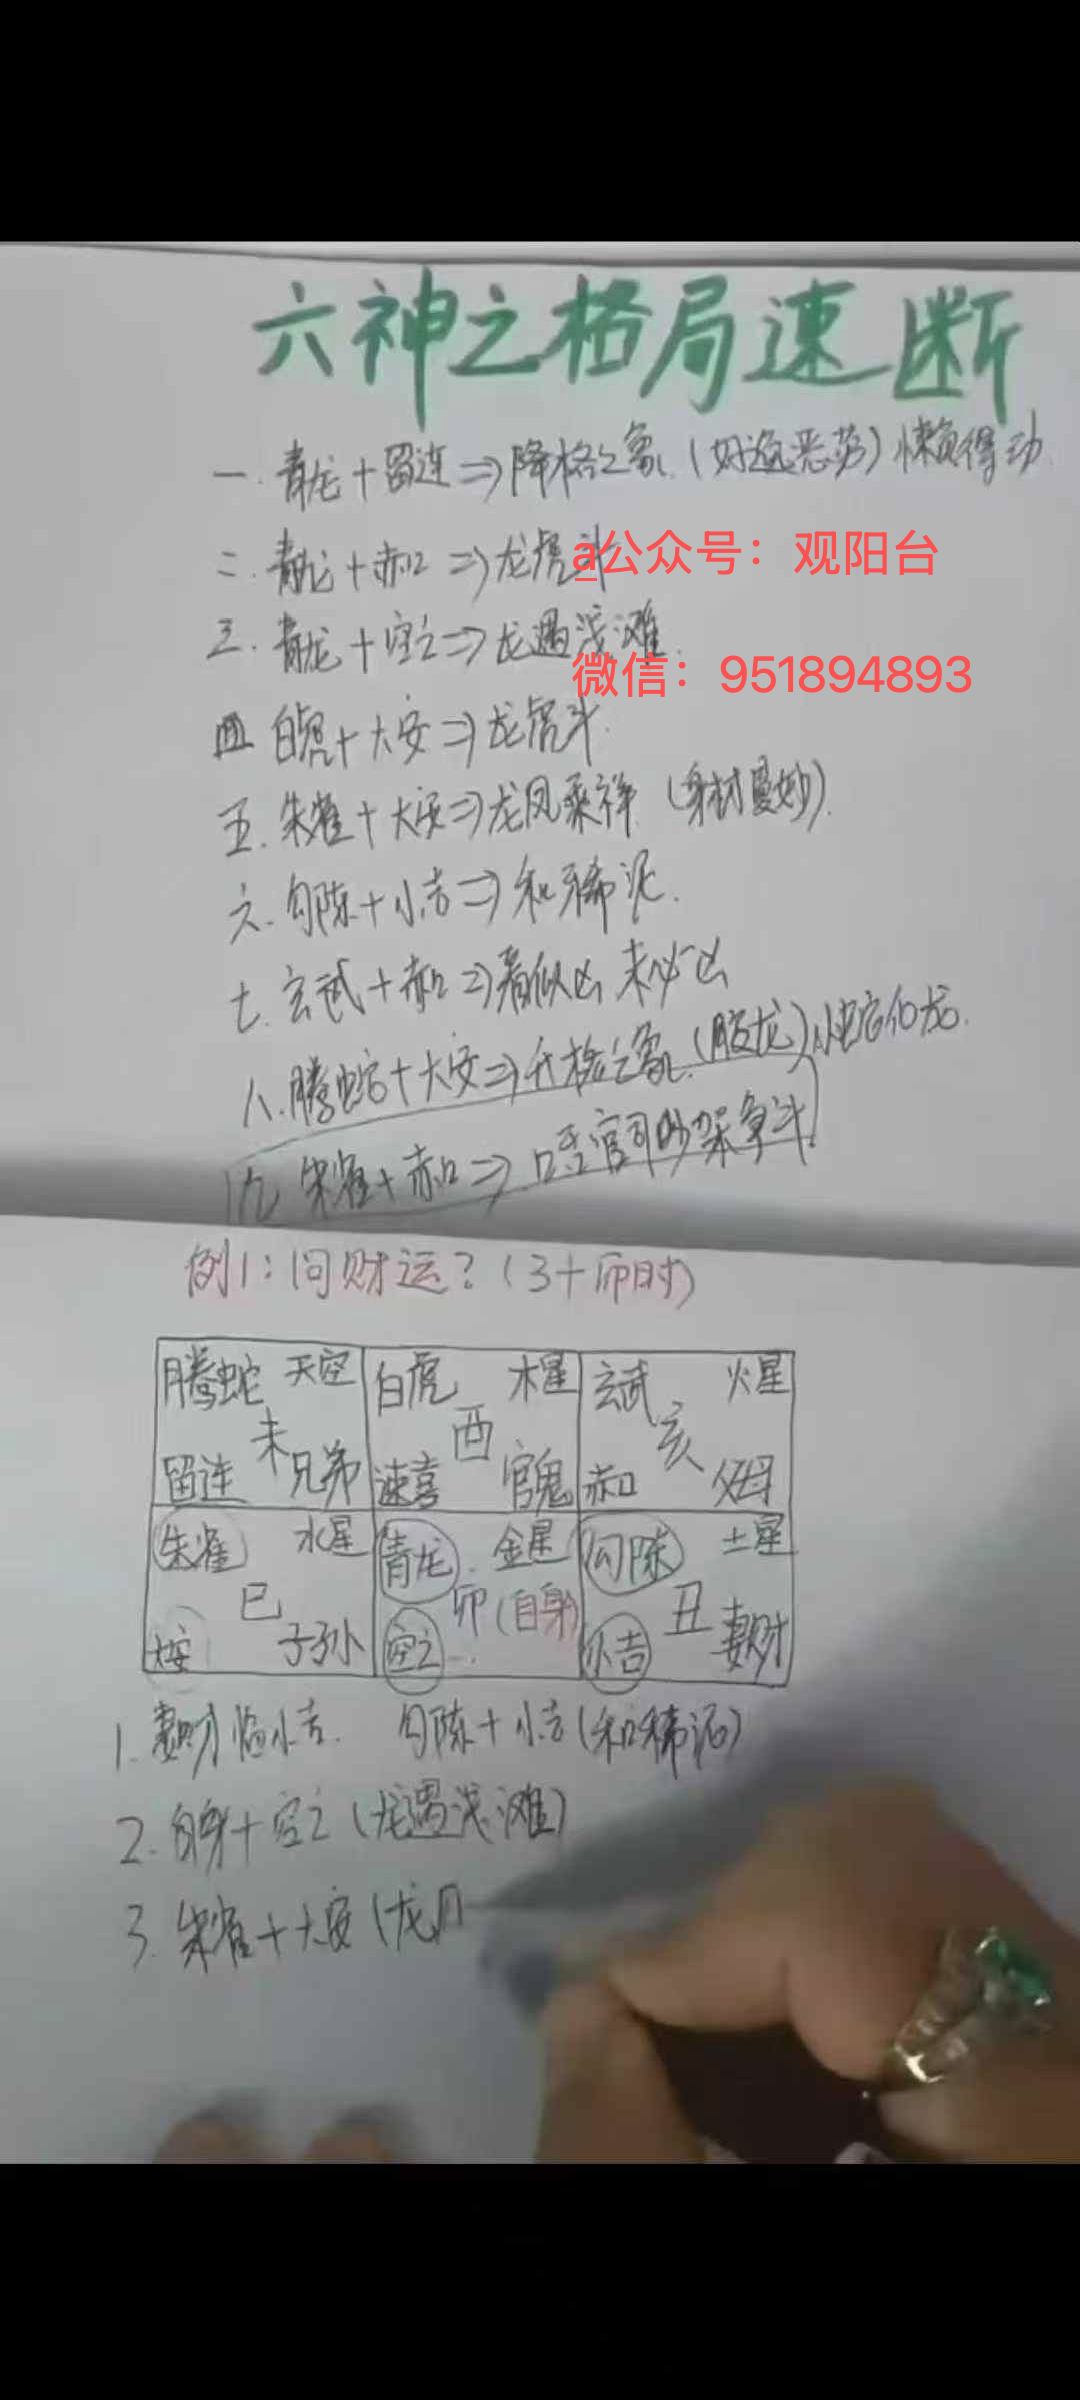 六神之格局速断
一.青龙+留连⇒降格之象.(好逸恶劳)懒得动
二.青龙+赤口⇒龙虎斗
a公众号：观阳台
三.青龙+空亡⇒龙遇浅滩.
微信：951894893
四 白虎+大安⇒龙虎斗.
五.朱雀+大安⇒龙凤乘祥(身材曼妙).
六.勾陈+小吉⇒和稀泥.
七.玄武+赤口⇒看似凶 未必凶
八.腾蛇+大安⇒升格之象.(股龙)小蛇化龙.
九 朱雀+赤口⇒口舌官司吵架争斗
例1:问财运?(3+卯时)
腾蛇 天空 白虎 木星 玄武 火星
未 酉 亥
留连 兄弟 速喜 官鬼 赤口 父母
朱雀 水星 青龙 金星 勾陈 土星
巳 卯(自身) 丑
大安 子孙 空亡 小吉 妻财
1.妻财临小吉. 勾陈+小吉(和稀泥)
2.自身+空亡(龙遇浅滩)
3.朱雀+大安(龙